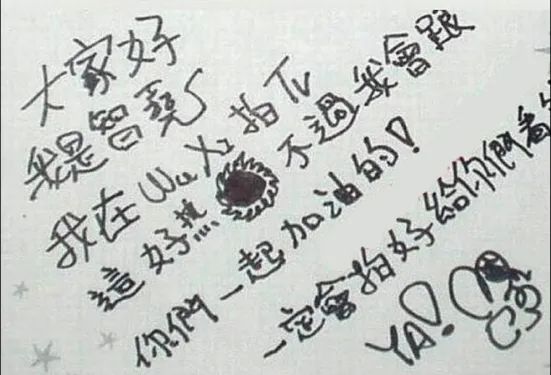 大家好
我是智堯
我在Wu Xi拍TV
這好熱 不過我會跟
你們一起加油的!
一定會拍好給你們看
YA!